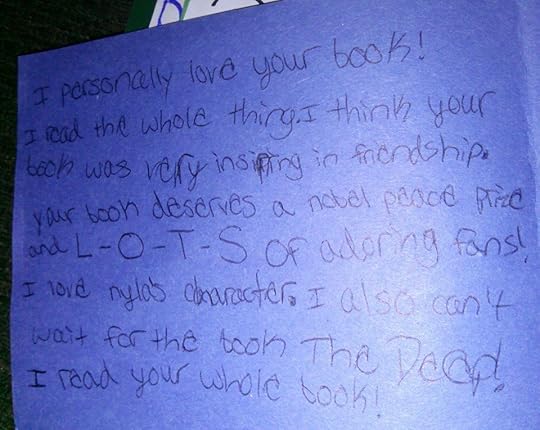 I personally love your book!
I read the whole thing. I think your
book was very insipting in friendship.
your book deserves a nobel peace prize
and L-O-T-S OF adoring fans!
I love nyla's character. I also can't
wait for the book The Deep!
I read your whole book!